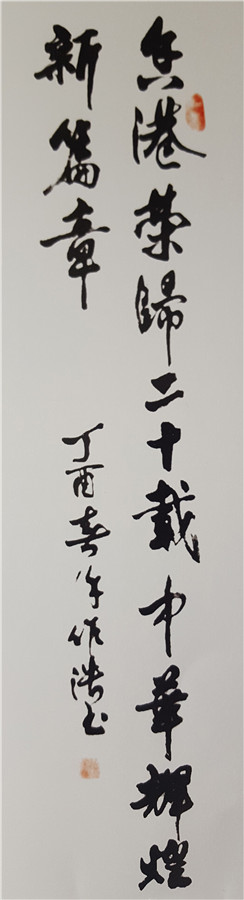 香港榮歸二十載中華輝煌
新篇章
丁酉春作浩书